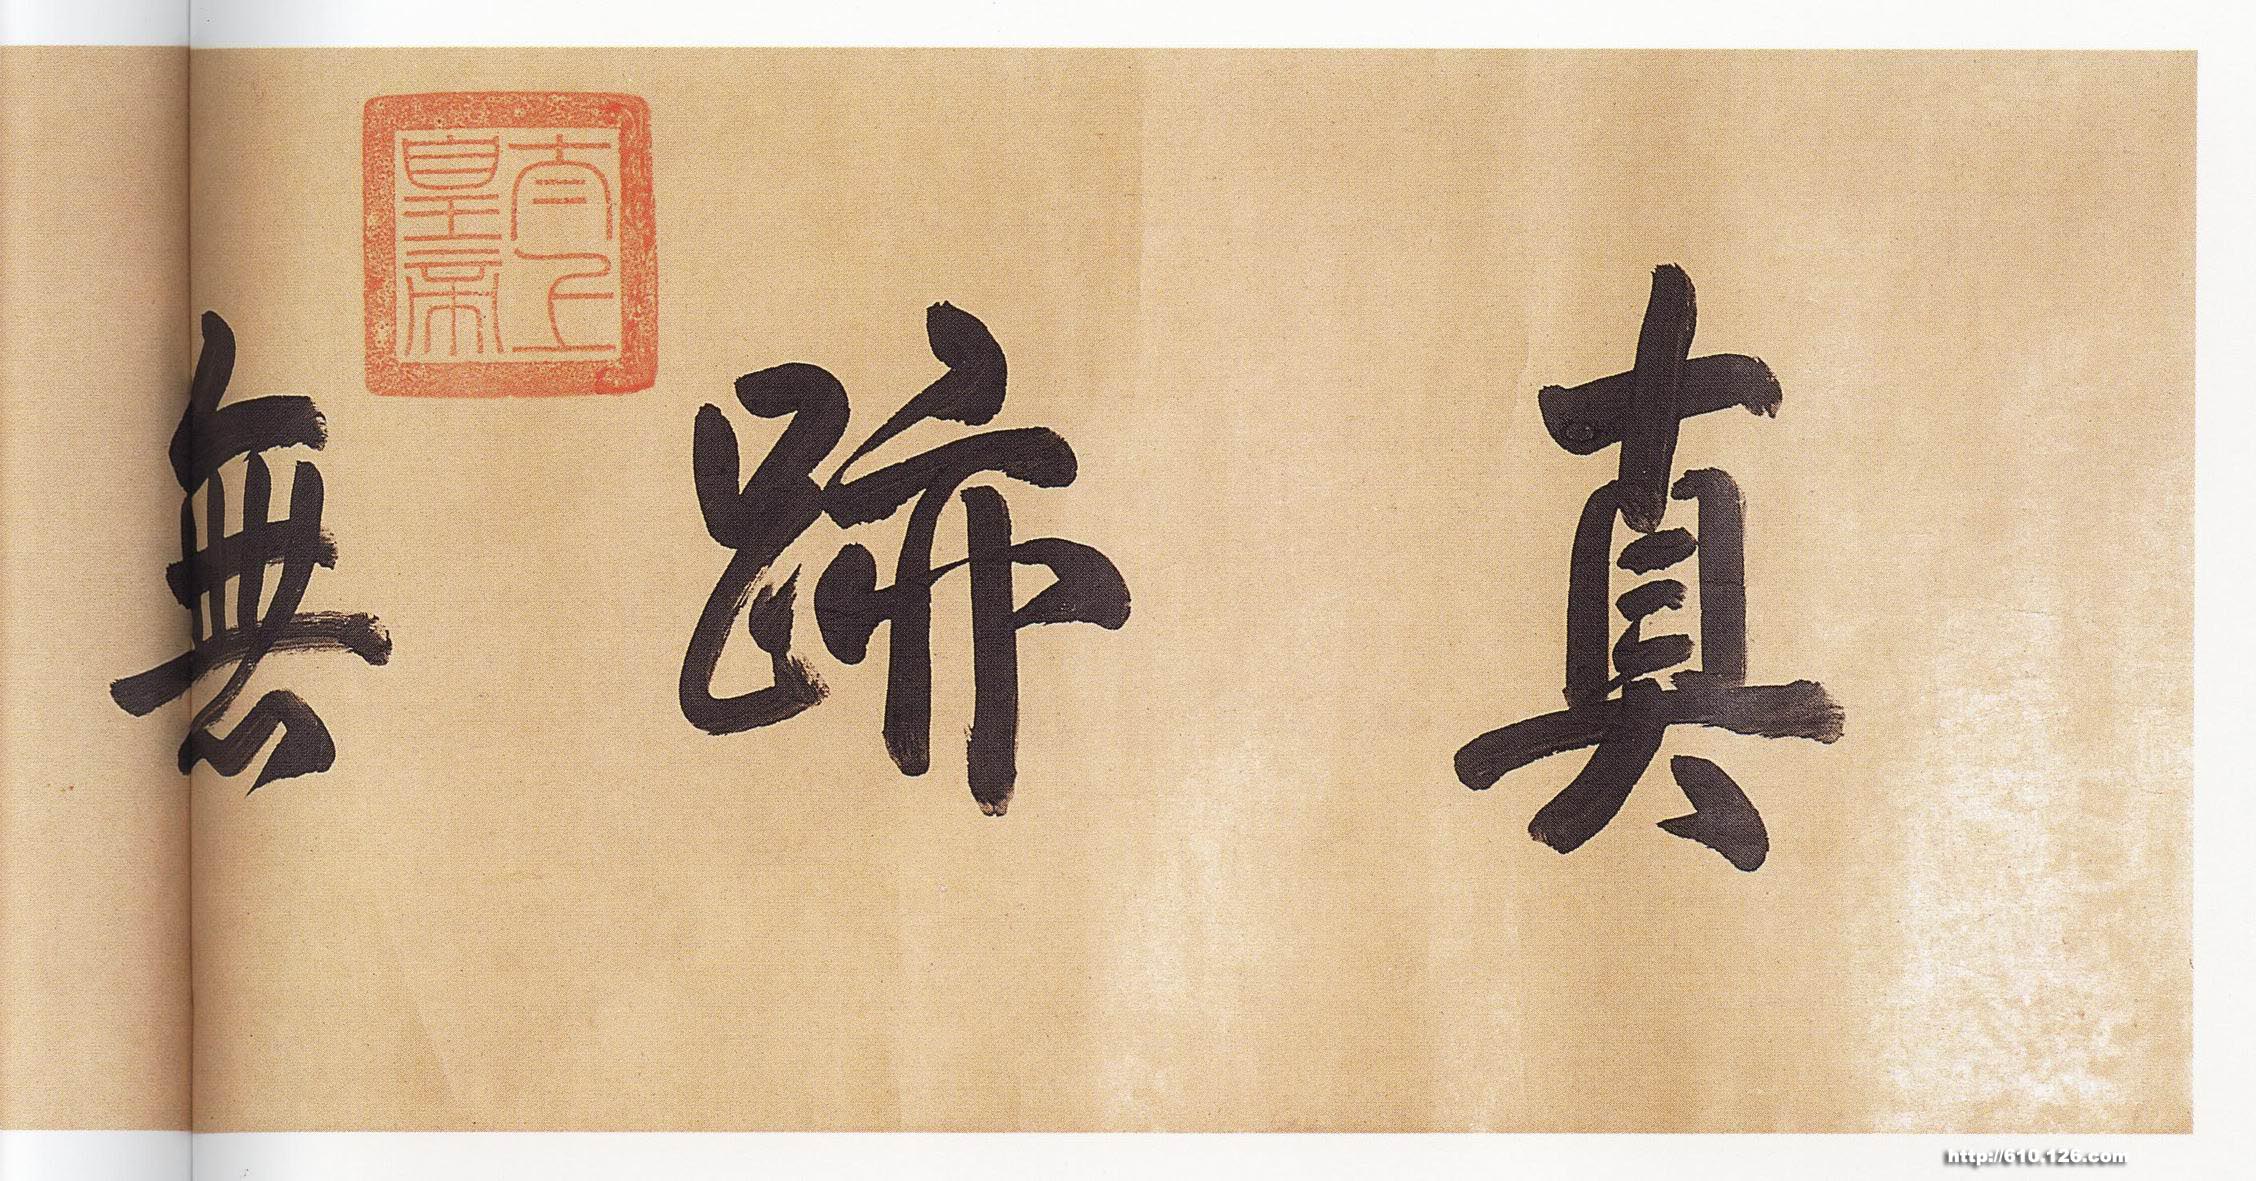 真跡無
太上皇帝
http://610.126.com